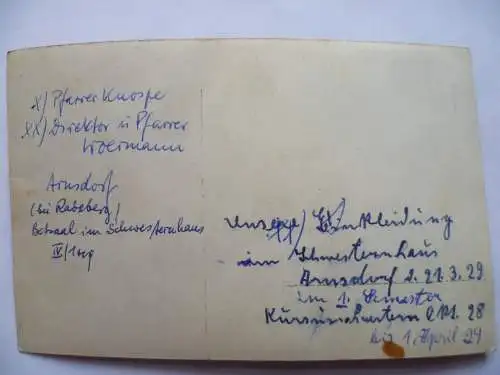 x) Pfarrer Knospe
xx) Direktor u Pfarrer
Arnsdorf
(bei Radeberg)
Betsaal im Schwesternhaus
Unsere Einkleidung
im Schwesternhaus
Arnsdorf d. 21.3.29
im 1. Semester
Okt. 28
bis 1 April 29